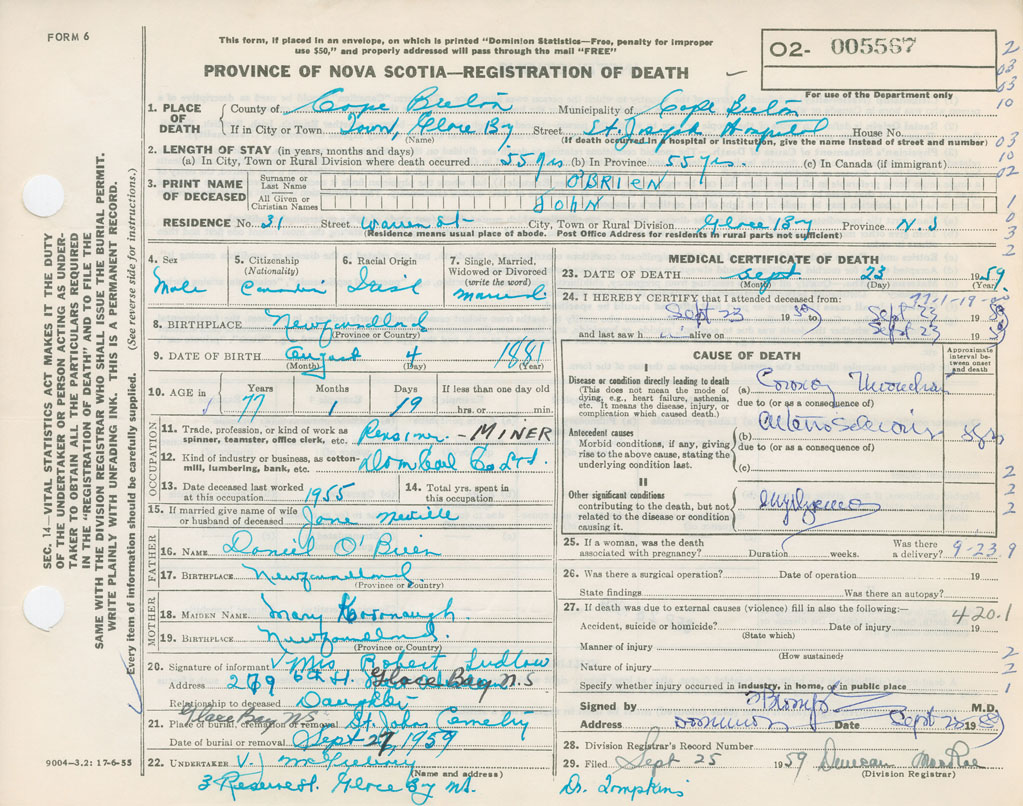 FORM 6
This form, if placed in an envelope, on which is printed "Dominion Statistics—Free, penalty for improper
use $50," and properly addressed will pass through the mail "FREE"
O2- 005567
PROVINCE OF NOVA SCOTIA—REGISTRATION OF DEATH
For use of the Department only
2
03
03
10
03
10
02
1
0
3
2
1. PLACE OF DEATH
County of Cape Breton Municipality of Cape Breton
If in City or Town Town, Glace Bay Street St. Joseph Hospital House No.
(Name) (If death occurred in a hospital or institution, give the name instead of street and number)
2. LENGTH OF STAY (in years, months and days)
(a) In City, Town or Rural Division where death occurred 55 yrs (b) In Province 55 yrs. (c) In Canada (if immigrant)
3. PRINT NAME OF DECEASED
Surname or Last Name O'BRIEN
All Given or Christian Names JOHN
RESIDENCE No. 31 Street Warren St City, Town or Rural Division Glace Bay Province N.S
(Residence means usual place of abode. Post Office Address for residents in rural parts not sufficient)
SEC. 14—VITAL STATISTICS ACT MAKES IT THE DUTY
OF THE UNDERTAKER OR PERSON ACTING AS UNDER-
TAKER TO OBTAIN ALL THE PARTICULARS REQUIRED
IN THE "REGISTRATION OF DEATH" AND TO FILE THE
SAME WITH THE DIVISION REGISTRAR WHO SHALL ISSUE THE BURIAL PERMIT.
WRITE PLAINLY WITH UNFADING INK. THIS IS A PERMANENT RECORD.
Every item of information should be carefully supplied. (See reverse side for instructions.)
4. Sex
Male
5. Citizenship
(Nationality)
Canadian
6. Racial Origin
Irish
7. Single, Married,
Widowed or Divorced
(write the word)
Married
8. BIRTHPLACE Newfoundland
(Province or Country)
9. DATE OF BIRTH August 4 1881
(Month) (Day) (Year)
10. AGE in
Years 77
Months 1
Days 19
If less than one day old
hrs. or min.
OCCUPATION
11. Trade, profession, or kind of work as
spinner, teamster, office clerk, etc. Pensioner - MINER
12. Kind of industry or business, as cotton-
mill, lumbering, bank, etc. Dom Coal Co Ltd.
13. Date deceased last worked
at this occupation 1955
14. Total yrs. spent in
this occupation
15. If married give name of wife
or husband of deceased Jane
FATHER
16. NAME Daniel O'Brien
17. BIRTHPLACE Newfoundland
(Province or Country)
MOTHER
18. MAIDEN NAME Mary Kavanaugh
19. BIRTHPLACE Newfoundland
(Province or Country)
20. Signature of informant Mrs Robert Ludlow
Address 279 6th St. Glace Bay N.S
Relationship to deceased Daughter
Glace Bay, NS
21. Place of burial, cremation or removal St. Johns Cemetery
Date of burial or removal Sept 27, 1959
22. UNDERTAKER V. J
(Name and address)
3 Reserve St. Glace Bay NS.
9004—3.2: 17-6-55
MEDICAL CERTIFICATE OF DEATH
23. DATE OF DEATH Sept 23 1959.
(Month) (Day) (Year)
77-1-19
24. I HEREBY CERTIFY that I attended deceased from:
Sept 23 1959 to Sept 23 1959
and last saw h alive on Sept 23 1959
CAUSE OF DEATH
Approximate
interval be-
tween onset
and death
I
Disease or condition directly leading to death
(This does not mean the mode of
dying, e.g., heart failure, asthenia,
etc. It means the disease, injury, or
complication which caused death.)
(a) Coronary
due to (or as a consequence of)
Antecedent causes
Morbid conditions, if any, giving
rise to the above cause, stating the
underlying condition last.
(b)
due to (or as a consequence of)
(c)
II
Other significant conditions
contributing to the death, but not
related to the disease or condition
causing it.
Emphysema
2
2
2
25. If a woman, was the death
associated with pregnancy? Duration weeks. Was there
a delivery?
9-23.9
26. Was there a surgical operation? Date of operation 19
State findings Was there an autopsy?
27. If death was due to external causes (violence) fill in also the following:—
420.1
Accident, suicide or homicide? Date of injury 19
(State which)
Manner of injury
(How sustained)
2
Nature of injury
2
Specify whether injury occurred in industry, in home, or in public place
1
Signed by M.D.
Address Dominion Date Sept 25 1959
28. Division Registrar's Record Number
29. Filed Sept 25 1959 Duncan MacRae
(Division Registrar)
Dr. Tompkins